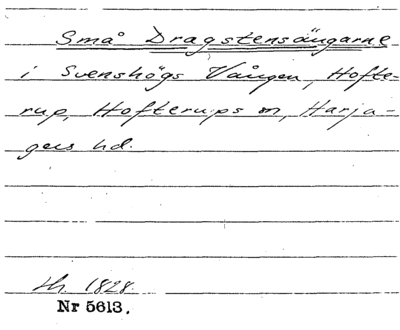 Små Dragstensängarne
i Svenshögs Vången, Hofte-
rup, Hofterups sn, Harja-
gers hd.
1828.
Nr 5613.